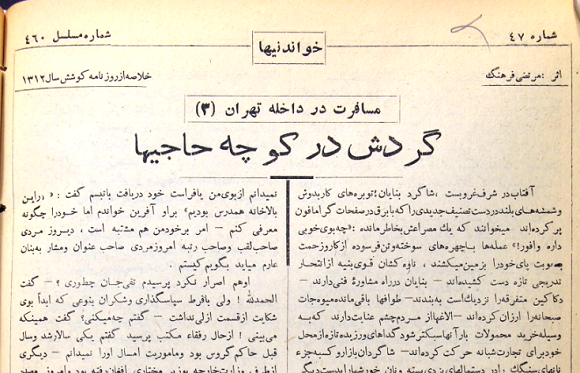 شماره ۴۷
خواندنیها
شماره مسلسل ۴۶۰
اثر : مرتضی فرهنگ
خلاصه از روزنامه کوشش سال ۱۳۱۲
مسافرت در داخله تهران (۳)
گردش در کوچه حاجیها
آفتاب در شرف غروبست ، شاگرد بنایان ؛ توبره‌های کاربدوش
وشمشه‌های بلند در دست تصنیف جدیدی را که با برق در صفحات گرامافون
پر کرده‌اند میخوانند که یك مصراعش بخاطر مانده : «چه بوی خوبی
داره وافور!» عمله‌ها با چهره‌های سوخته وتن فرسوده از کار و زحمت
بصعوبت پای خود را بزمین میکشند ، ناوه کشان قوی بنیه از انتحار
تدریجی تازه دست کشیده‌اند — بنایان در راه مشاورهٔ فنی دارند —
دکاکین متفرقه را نزدیك است به‌بندند — طوافها باقی مانده میوه‌جات
صبحانه را ارزان کرده‌اند — الاغها از مردم چشم عنایت دارند که به
وسیله خرید محمولات بار آنها سبکتر شود گداهای ورزیده تازه از محل
خود برای تجارت شبانه حرکت کرده‌اند — شاگردان بازار و کسبه جزء
نانهای سنگك را در دستمالهای یزدی بسته و نان خود شب را بدست دیگر
نمیدانم از بوی من یا فراست خود دریافت با تبسم گفت : « در این
بالاخانه همدرس بودیم» بر او آفرین خواندم اما خود را چگونه
معرفی کنم — امر بر خود من هم مشتبه است ، دیروز مردی
صاحب لقب وصاحب رتبه امروز مردی صاحب عنوان ومشار به بنان
عارم میاید بگویم کیستم .
او هم اصرار نکرد پرسیدم تقی جان چطوری ؟ — گفت
الحمدلله ! ولی با فرط سپاسگذاری وشکران بنوعی که ابداً بوی
شکایت از قسمت ازلی نداشت — گفتم چه میکنی؟ گفت همینکه
می‌بینی ! از حال رفقاء مکتب پرسید گفتم یکی سالار شد وسال
قبل حاکم گروس بود وماموریت امسال اورا نمیدانم — دیگری
از طرف وزارت خارجه بوزیر مختاری افغان رفته بود وامروز مصدر